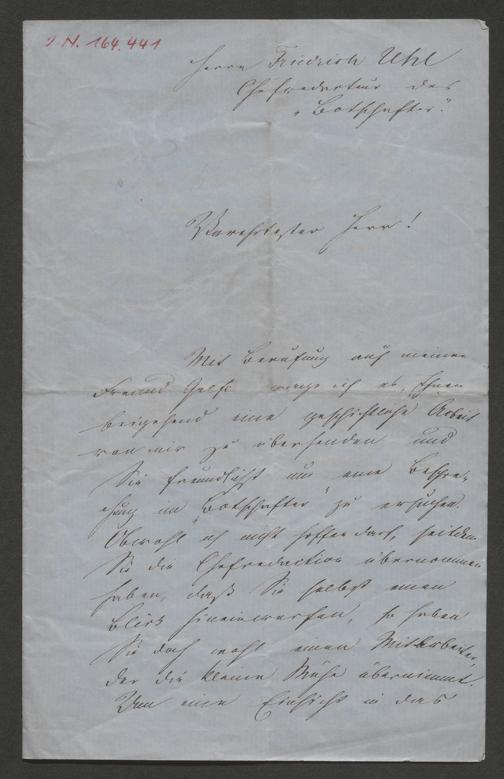 J.N. 164.441
Herrn Friedrich Uhl
Chefredacteur des
„Botschafter“.
Verehrtester Herr!
Mit Berufung auf meinen
Freund wage ich es, Ihnen
beigehend eine geschichtliche Arbeit
von mir zu übersenden und
Sie freundlichst um eine Bespre-
chung im „Botschafter“ zu ersuchen.
Obwohl ich nicht hoffen darf, seitdem
Sie die Chefredaction übernommen
haben, daß Sie selbst einen
Blick hineinwerfen, so haben
Sie doch wohl einen Mitarbeiter,
der die kleine Mühe übernimmt.
Um eine Einsicht in das